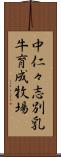 中仁々志別乳
牛育成牧場